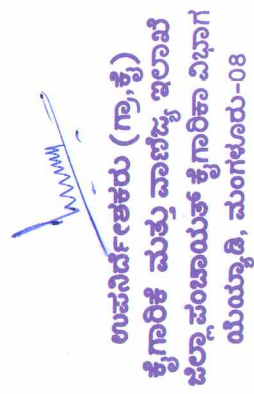 ಉಪನಿರ್ದೇಶಕರು (ಗ್ರಾ,ಕೈ)
ಕೈಗಾರಿಕೆ ಮತ್ತು ವಾಣಿಜ್ಯ ಇಲಾಖೆ
ಜಿಲ್ಲಾ ಪಂಚಾಯತ್ ಕೈಗಾರಿಕಾ ವಿಭಾಗ
ಯೆಯ್ಯಾಡಿ, ಮಂಗಳೂರು-08